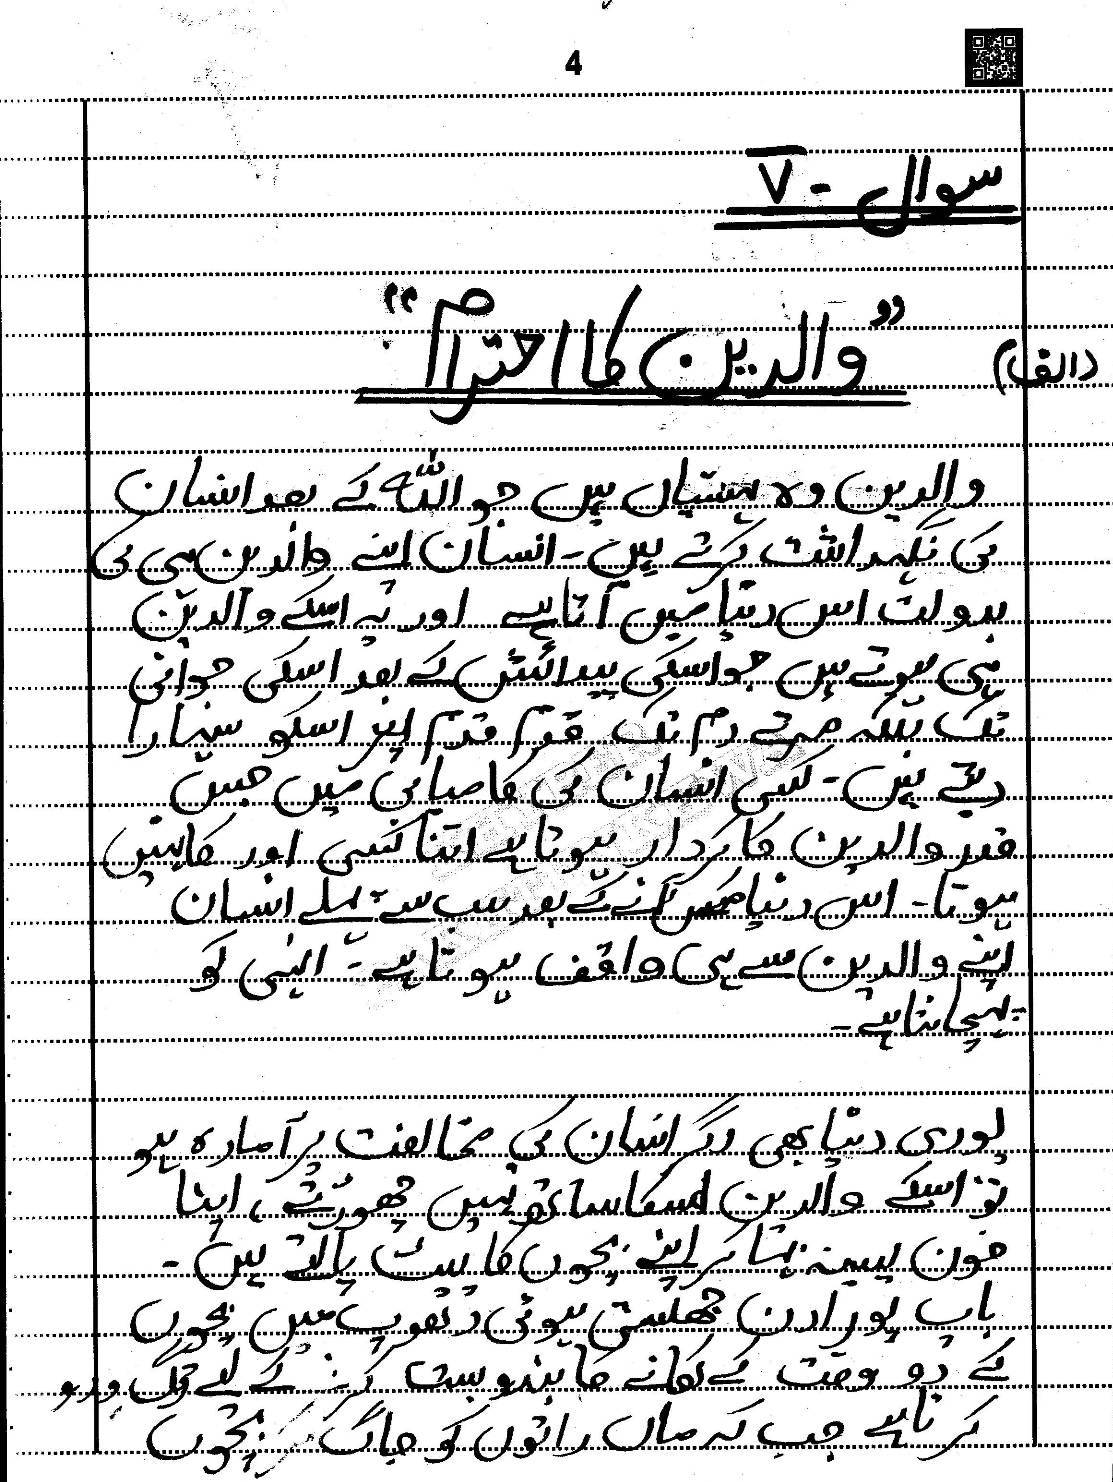 4
سوال - ۷
(الف) "والدین کا احترام"
والدین وہ ہستیاں ہیں جو اللہ کے بعد انسان
کی نگہداشت کرتے ہیں - انسان اپنے والدین ہی کی
بدولت اس دنیا میں آتا ہے اور یہ اسکے والدین
ہی ہوتے ہیں جو اسکی پیدائش کے بعد اسکی جوانی
تک بلکہ مرتے دم تک قدم قدم پر اسکو سہارا
دیتے ہیں - کسی انسان کی کامیابی میں جس
قدر والدین کا کردار ہوتا ہے اتنا کسی اور کا نہیں
ہوتا - اس دنیا میں آنے کے بعد سب سے پہلے انسان
اپنے والدین سے ہی واقف ہوتا ہے - انہی کو
پہچانتا ہے -
پوری دنیا بھی گر انسان کی مخالفت پر آمادہ ہو
تو اسکے والدین اسکا ساتھ نہیں چھوڑتے، اپنا
خون پسینہ بہا کر اپنے بچوں کا پیٹ پالتے ہیں -
باپ پورا دن جھلستی ہوئی دھوپ میں بچوں
کے دو وقت کے کھانے کا بندوبست کرنے کے لیے تگ و دو
کرتا ہے جب کہ ماں راتوں کو جاگ کر بچوں